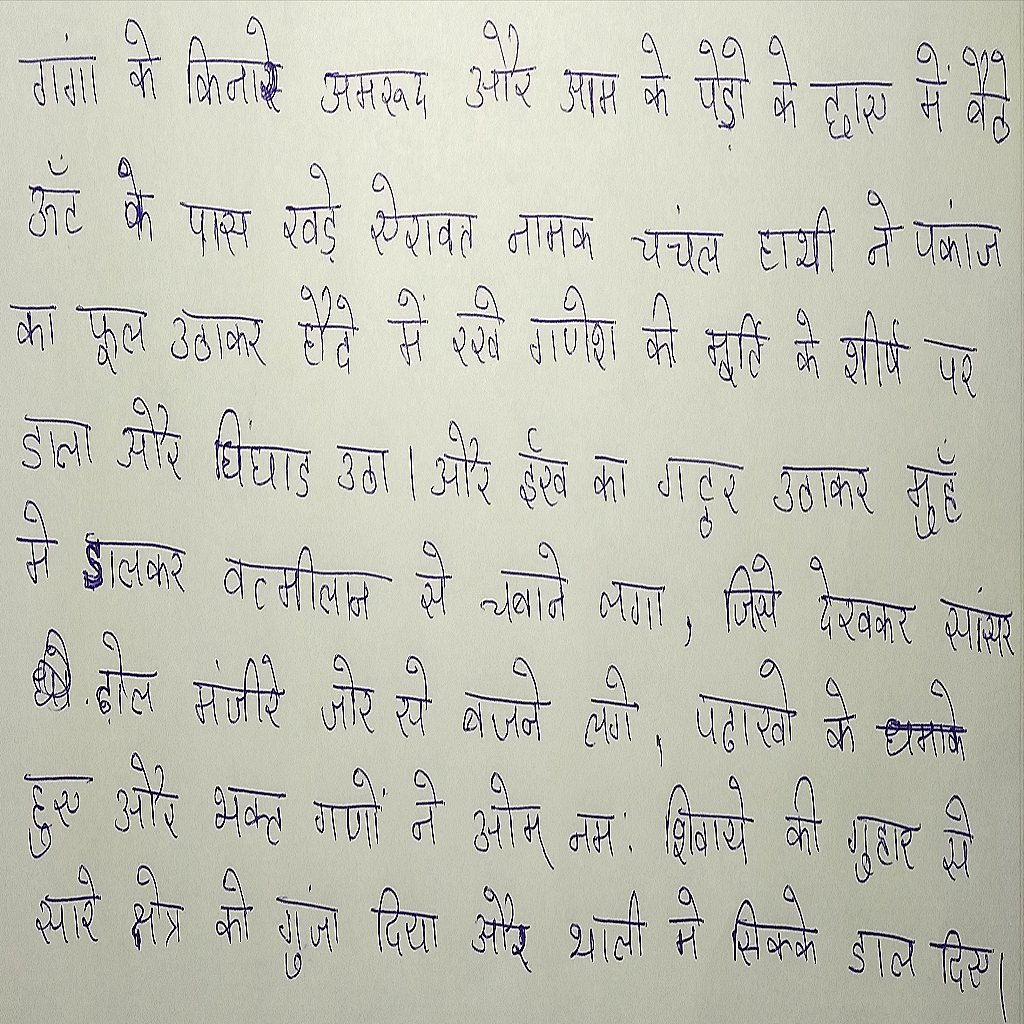 गंगा के किनारे अमरूद और आम के पेड़ो के छाए में बैठे
ऊँट के पास खड़े ऐरावत नामक चंचल हाथी ने पंकाज
का फूल उठाकर हौदे में रखे गणेश की मूर्ति के शीर्ष पर
डाला और घिंघाड उठा। और ईख का गट्ठर उठाकर मुहँ
मे डालकर से चबाने लगा, जिसे देखकर सांसर
ढ़ोल मंजीरे जोर से बजने लगे, पटाखो के धमाके
हुए और भक्त गणों ने ओम् नम: शिवाये की गुहार से
सारे क्षेत्र को गुंजा दिया और थाली मे सिक्के डाल दिए।